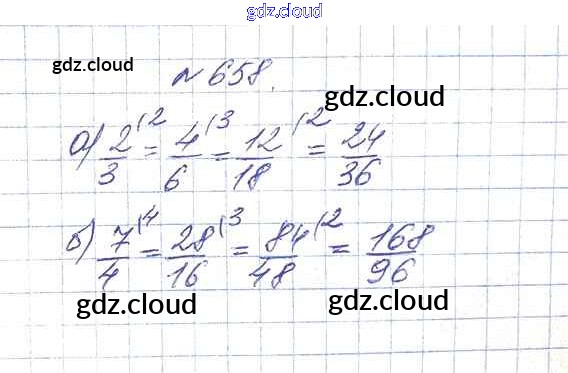 gdz.cloud
gdz.cloud
№ 658.
gdz.cloud
а) 2/3 (2 = 4/6 (3 = 12/18 (2 = 24/36
б) 7/4 (4 = 28/16 (3 = 84/48 (2 = 168/96
gdz.cloud
gdz.cloud